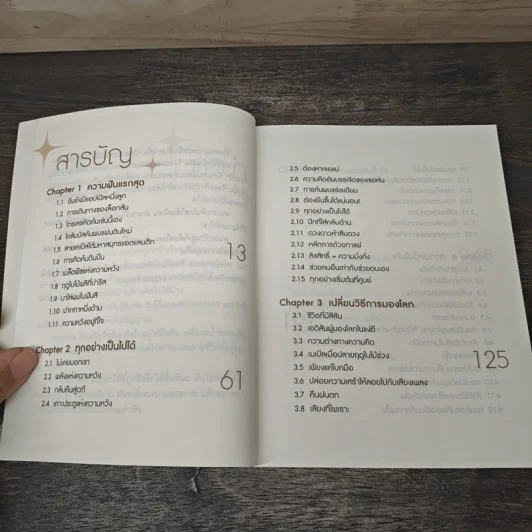 สารบัญ
Chapter 1 ความฝันแรกสุด
1.1 ฉันยังมีแอปเปิลหนึ่งลูก
1.2 การเดินทางของล็อกสัน
1.3 โทรเลขคิดก้นเช่นนี้เอง
1.4 โคลัมบัสค้นพบแผ่นดินใหม่
1.5 สายเคเบิลใต้มหาสมุทรแอตแลนติก
1.6 การคิดค้นดินปืน
1.7 เมล็ดพืชแห่งความหวัง
1.8 ฤดูใบไม้ผลิที่ปารีส
1.9 มาไล่ฝนในฝันสิ
1.10 ปากกาหนึ่งด้าม
1.11 ความหวังอยู่ที่ใจ
13
Chapter 2 ทุกอย่างเป็นไปได้
2.1 ไม่เคยบอกเขา
2.2 พลังแห่งความหวัง
2.3 กลับคืนสู่เวที
2.4 เคาะประตูแห่งความหวัง
61
2.5 ต้องหาเจอแน่
2.6 ความคิดอันบรรเจิดของจอห์น
2.7 การค้นพบแร่เรเดียม
2.8 ต้องยืนขึ้นได้แน่นอน!
2.9 ทุกอย่างเป็นไปได้
2.10 ปีกที่ใช้กลับด้าน
2.11 ดวงดาวก้าสินดวง
2.12 หลักการถ้วยกาแฟ
2.13 ลิขสิทธิ์ = ความมั่งคั่ง
2.14 ช่วยคนอื่นเท่ากับช่วยตนเอง
2.15 ทุกอย่างเริ่มต้นที่ศูนย์
Chapter 3 เปลี่ยนวิธีการมองโลก
3.1 ชีวิตที่มีสีสัน
3.2 เอดิสันผู้มองโลกในแง่ดี
3.3 ความต่างทางความคิด
3.4 แมเปิลเมื่อปลายฤดูใบไม้ร่วง
3.5 เพียงแค่โบกมือ
3.6 ปล่อยความเศร้าให้ลอยไปกับเสียงเพลง
3.7 คืนฝนตก
3.8 เสียงที่ไพเราะ
125